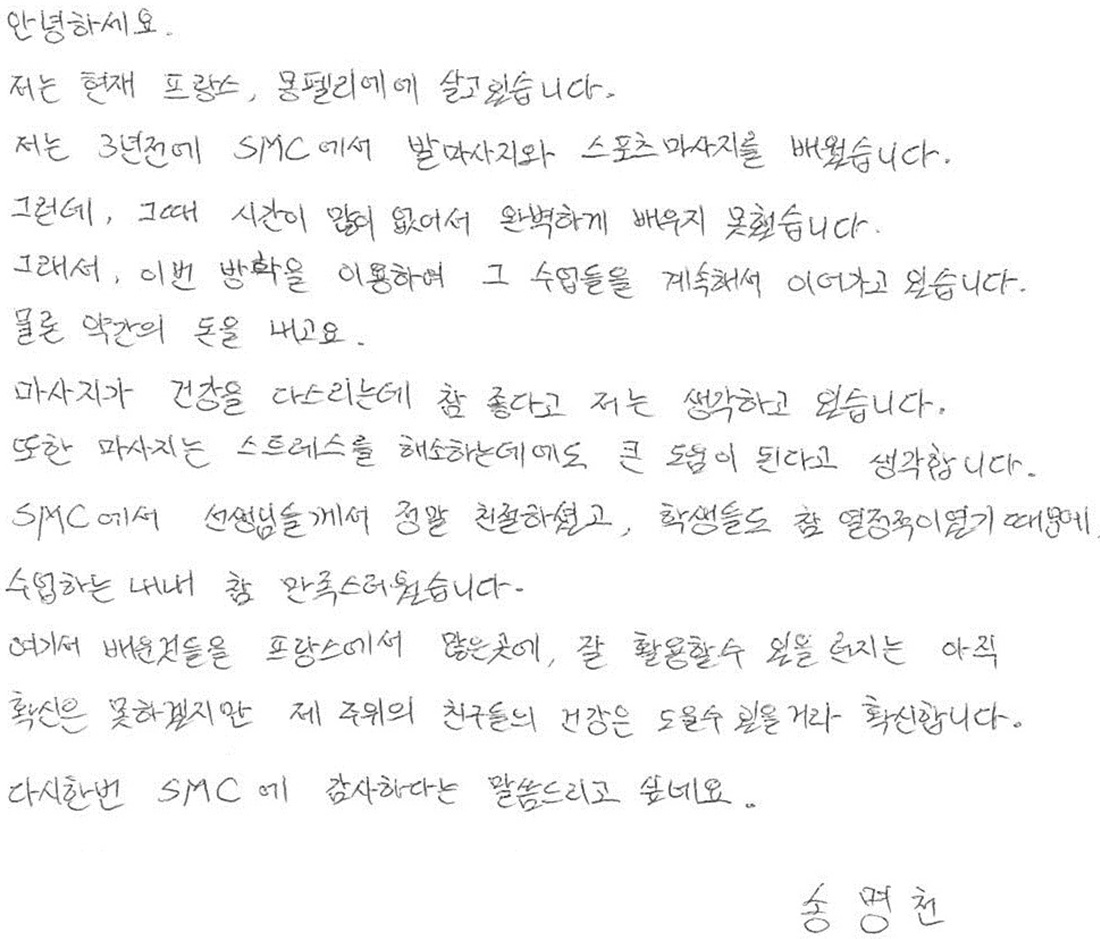 안녕하세요.
저는 현재 프랑스, 몽펠리에에 살고있습니다.
저는 3년전에 SMC에서 발마사지와 스포츠마사지를 배웠습니다.
그런데, 그때 시간이 많이 없어서 완벽하게 배우지 못했습니다.
그래서, 이번 방학을 이용하여 그 수업들을 계속해서 이어가고 있습니다.
물론 약간의 돈을 내고요.
마사지가 건강을 다스리는데 참 좋다고 저는 생각하고 있습니다.
또한 마사지는 스트레스를 해소하는데에도 큰 도움이 된다고 생각합니다.
SMC에서 선생님들께서 정말 친절하셨고, 학생들도 참 열정적이였기 때문에,
수업하는 내내 참 만족스러웠습니다.
여기서 배운것들을 프랑스에서 많은곳에, 잘 활용할수 있을런지는 아직
확신은 못하겠지만 제 주위의 친구들의 건강은 도울수 있을거라 확신합니다.
다시한번 SMC에 감사하다는 말씀드리고 싶네요.
송명천